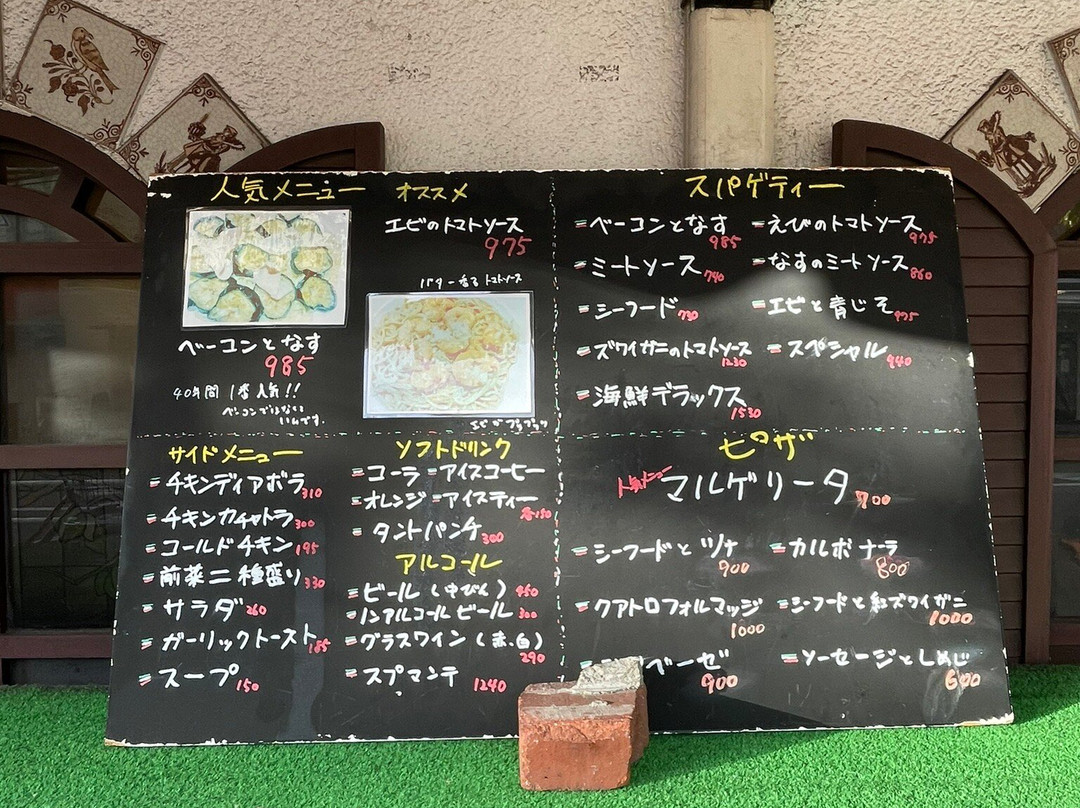 人気メニュー
オススメ
エビのトマトソース
975
バター香る トマトソース
ベーコンとなす
985
40年間 1番人気!!
ベーコンではなくて
いんです。
スパゲティー
ベーコンとなす 985
えびのトマトソース 975
ミートソース 740
なすのミートソース 860
シーフード 730
エビと青じそ 975
ズワイガニのトマトソース 1230
スペシャル 940
海鮮デラックス 1530
サイドメニュー
チキンディアボラ 310
チキンカチャトラ 300
コールドチキン 195
前菜二種盛り 330
サラダ 260
ガーリックトースト 185
スープ 150
ソフトドリンク
コーラ アイスコーヒー
オレンジ アイスティー
各150
タントパンチ 300
アルコール
ビール(中びん) 450
ノンアルコールビール 300
グラスワイン(赤、白)
290
スプマンテ 1240
ピザ
人気メニュー マルゲリータ 700
シーフードとツナ 900
カルボナーラ 800
クアトロフォルマッジ 1000
シーフードと紅ズワイガニ 1000
ベーゼ 900
ソーセージとしめじ 600